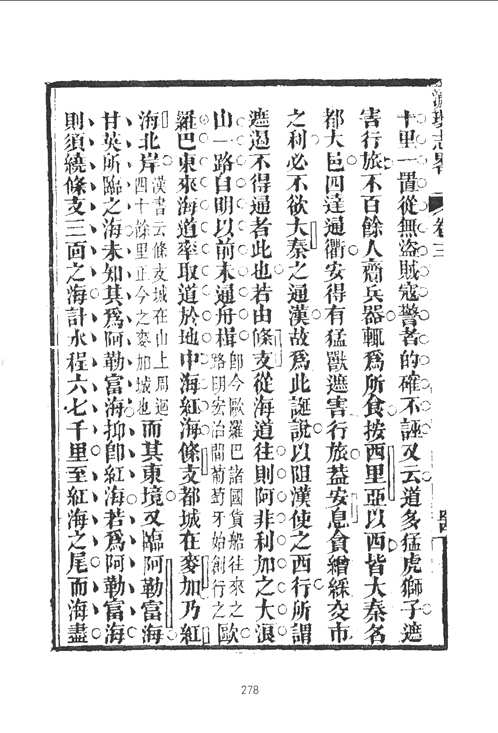 瀛環志畧 卷三
十里一置從無盜賊寇警者的確不誣又云道多猛虎獅子遮
害行旅不百餘人齎兵器輒爲所食按西里亞以西皆大秦名
都大邑四達通衢安得有猛獸遮害行旅葢安息貪繒綵交市
之利必不欲大秦之通漢故爲此誕說以阻漢使之西行所謂
遮遏不得通者此也若由條支從海道往則阿非利加之大浪
山一路自明以前未通舟楫卽今歐羅巴諸國貨船往來之路明宏治間葡萄牙始創行之歐
羅巴東來海道率取道於地中海紅海條支都城在麥加乃紅
海北岸漢書云條支城在山上周迴四十餘里正今之麥加城也而其東境又臨阿勒富海
甘英所臨之海未知其爲阿勒富海抑卽紅海若爲阿勒富海
則須繞條支三面之海計水程六七千里至紅海之尾而海盡
278